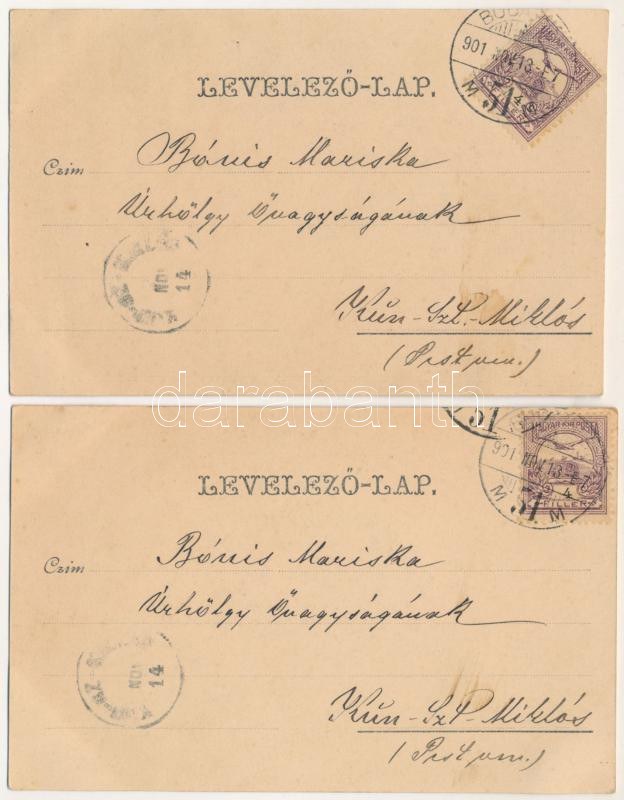 BUDAPEST
901 NOV 13
M 51
MAGYAR KIR. POSTA
FILLER
LEVELEZŐ-LAP.
Czim Bónis Mariska
Úrhölgy Őnagyságának
NOV
14
Kún-Szt.-Miklós
(Pest vm.)
darabanth
51
901 NOV 13
M 51 M
MAGYAR KIR. POSTA
FILLER
LEVELEZŐ-LAP.
Czim Bónis Mariska
Úrhölgy Őnagyságának
NOV
14
Kún-Szt-Miklós
(Pest vm.)